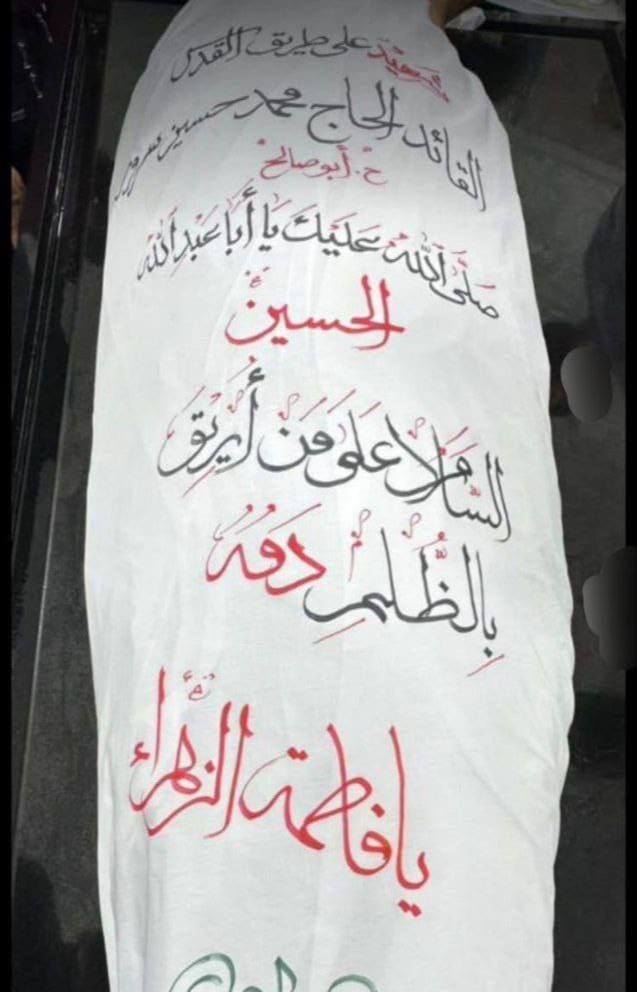 شهيد على طريق القدس
القائد الحاج محمد حسين سرور
ح. أبو صالح
صَلَّى اَللهُ عَلَيْكَ يَا أَبَا عَبْدِ اَللهْ
الحسين
السَّلامُ عَلَى مَنْ أُرِيقَ
بِالظُّلمِ دَمُهُ
يا فاطمة الزهراء